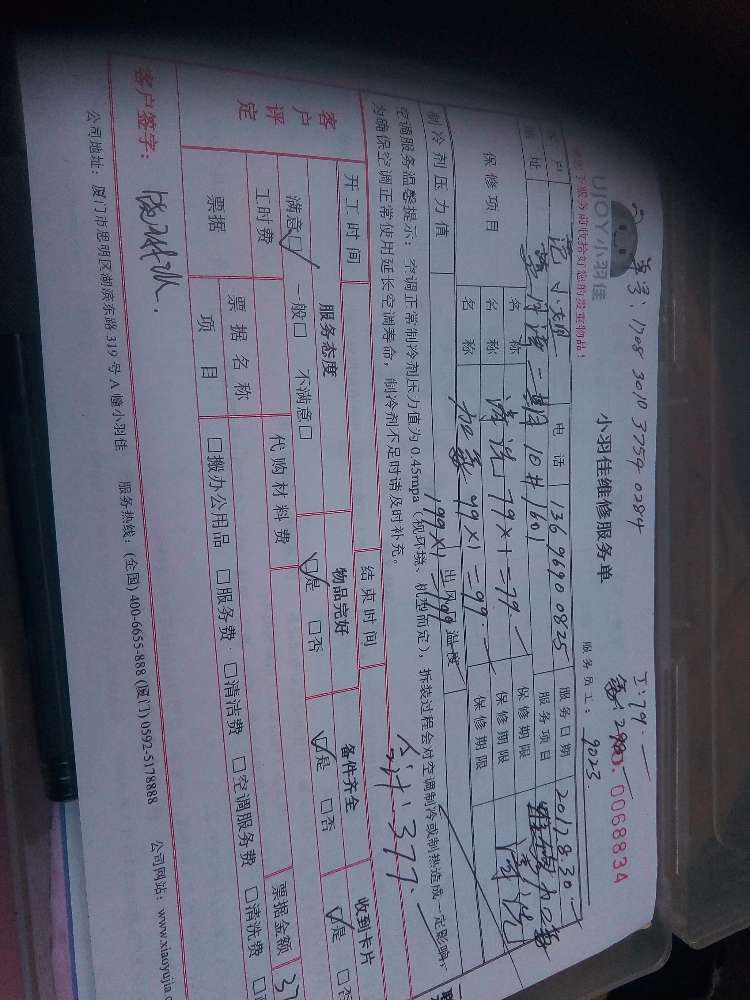 单号:1708 3010 3754 0284
工:79.—
UJOY小羽佳
小羽佳维修服务单
0068834
服务员工: 9023
于服务前收拾好您的贵重物品!
电话 136 9690 0825 服务日期 2017.8.30.
址 二期10#1601 服务项目
保修项目 名称 保修期限
名称 清洗 79×1=79.— 保修期限 清洗
名称 99×1=99.— 保修期限
制冷剂压力值 199×1=199 出风口温度
空调服务温馨提示:空调正常制冷剂压力值为0.45mpa(视环境、机型而定),拆装过程会对空调制冷或制热造成一定影响,
为确保空调正常使用延长空调寿命,制冷剂不足时请及时补充。
合计:377.—
开工时间 结束时间
客户评定 服务态度 物品完好 备件齐全 收到卡片
满意☑ 一般□ 不满意□ ☑是 □否 ☑是 □否 ☑是 □否
工时费 代购材料费 票据金额 37
票据 票据名称
项目 □搬办公用品 □服务费 □清洁费 □空调服务费 □清洗费
客户签字:
公司地址:厦门市思明区湖滨东路319号A幢小羽佳 服务热线:(全国)400-6655-888 (厦门)0592-5178888 公司网站:www.xiaoyujia.c